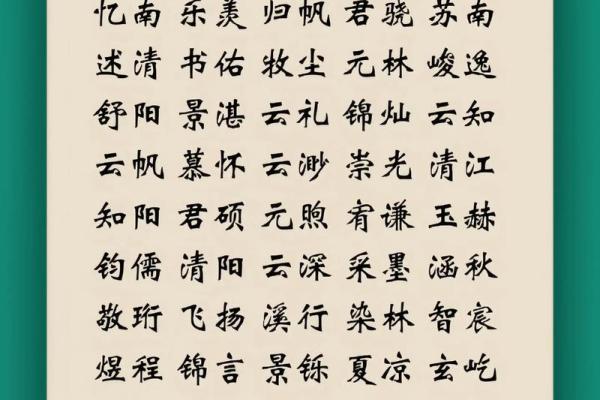 忆南 乐羡 归帆 君骁 苏南
述清 书佑 牧尘 元林 峻逸
舒阳 景湛 云礼 锦灿 云知
云帆 慕怀 云渺 崇光 清江
知阳 君硕 元煦 宥谦 玉赫
钧儒 清阳 云深 采墨 涵秋
敬珩 飞扬 溪行 染林 智宸
煜程 锦言 景铄 夏凉 玄屹